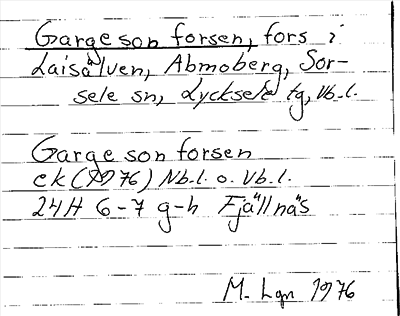 Gargeson forsen, fors i
Laisälven, Abmoberg, Sor-
sele sn, Lycksele tg, Vb.l.
Gargeson forsen
ek (1976) Nb.l. o. Vb.l.
24H 6-7 g-h Fjällnäs
M. Lgn 1976